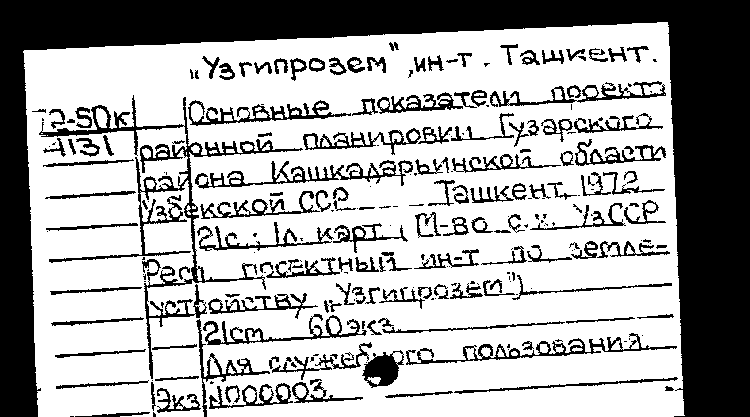 „Узгипрозем", ин-т. Ташкент.
72-50к Основные показатели проекта
4131 районной планировки Гузарского
района Кашкадарьинской области
Узбекской ССР Ташкент, 1972
21с.; 1л. карт. (М-во с.х. УзССР
Респ. проектный ин-т по земле-
устройству „Узгипрозем").
21см. 60экз.
Для служебного пользования.
Экз.N000003.